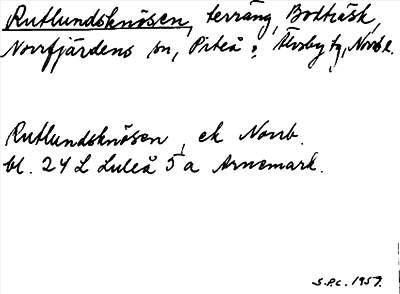 Rutlundsknösen, terräng, Bodträsk,
Norrfjärdens sn, Piteå o. Älvsby tg, Norrb.
Rutlundsknösen, ek Norrb.
bl. 24 L Luleå 5 a Arnemark.
S.P.C. 1957.